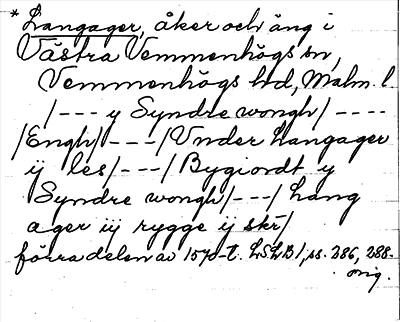 * Langager, åker och äng i
Västra Vemmenhögs sn,
Vemmenhögs hd, Malm. l.
/--- y Syndre wongh/ ----
/Engh/ ---/Vnder Langager
ij les/---/Bygiordt y
Syndre wongh/---/Lang
ager iij rygge ij skr/
förra delen av 1570-t. LSLB 1, ss. 286, 288.
orig.